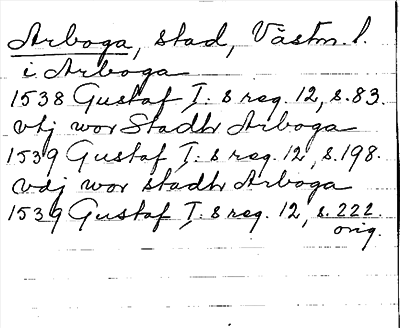 Arboga, stad, Västm. l.
i Arboga
1538 Gustaf I:s reg. 12, s. 83.
vtj wor Stadh Arboga
1539 Gustaf I:s reg. 12, s. 198.
vdj wor stadh Arboga
1539 Gustaf I:s reg. 12, s. 222
orig.